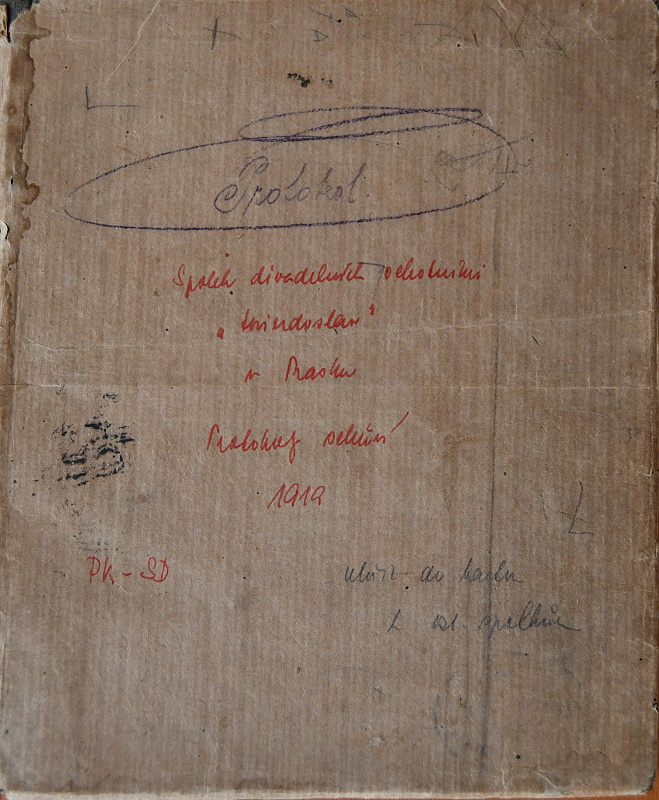 Protokol
Spolek divadelních ochotníků
„Hviezdoslav"
v Praze
Protokoly schůzí
1919
PK - SD
uložit do
k ost. spolkům